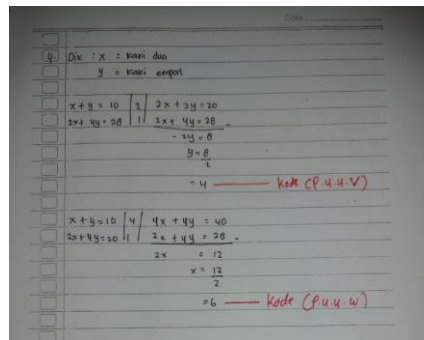 Date :
4. Dik : x = kaki dua
y = kaki empat
x + y = 10 | 2 | 2x + 2y = 20
2x + 4y = 28 | 1 | 2x + 4y = 28 -
- 2y = 8
y = 8/2
= 4 — Kode (P.4.4.V)
x + y = 10 | 4 | 4x + 4y = 40
2x + 4y = 28 | 1 | 2x + 4y = 28 -
2x = 12
x = 12/2
= 6 — Kode (P.4.4.W)